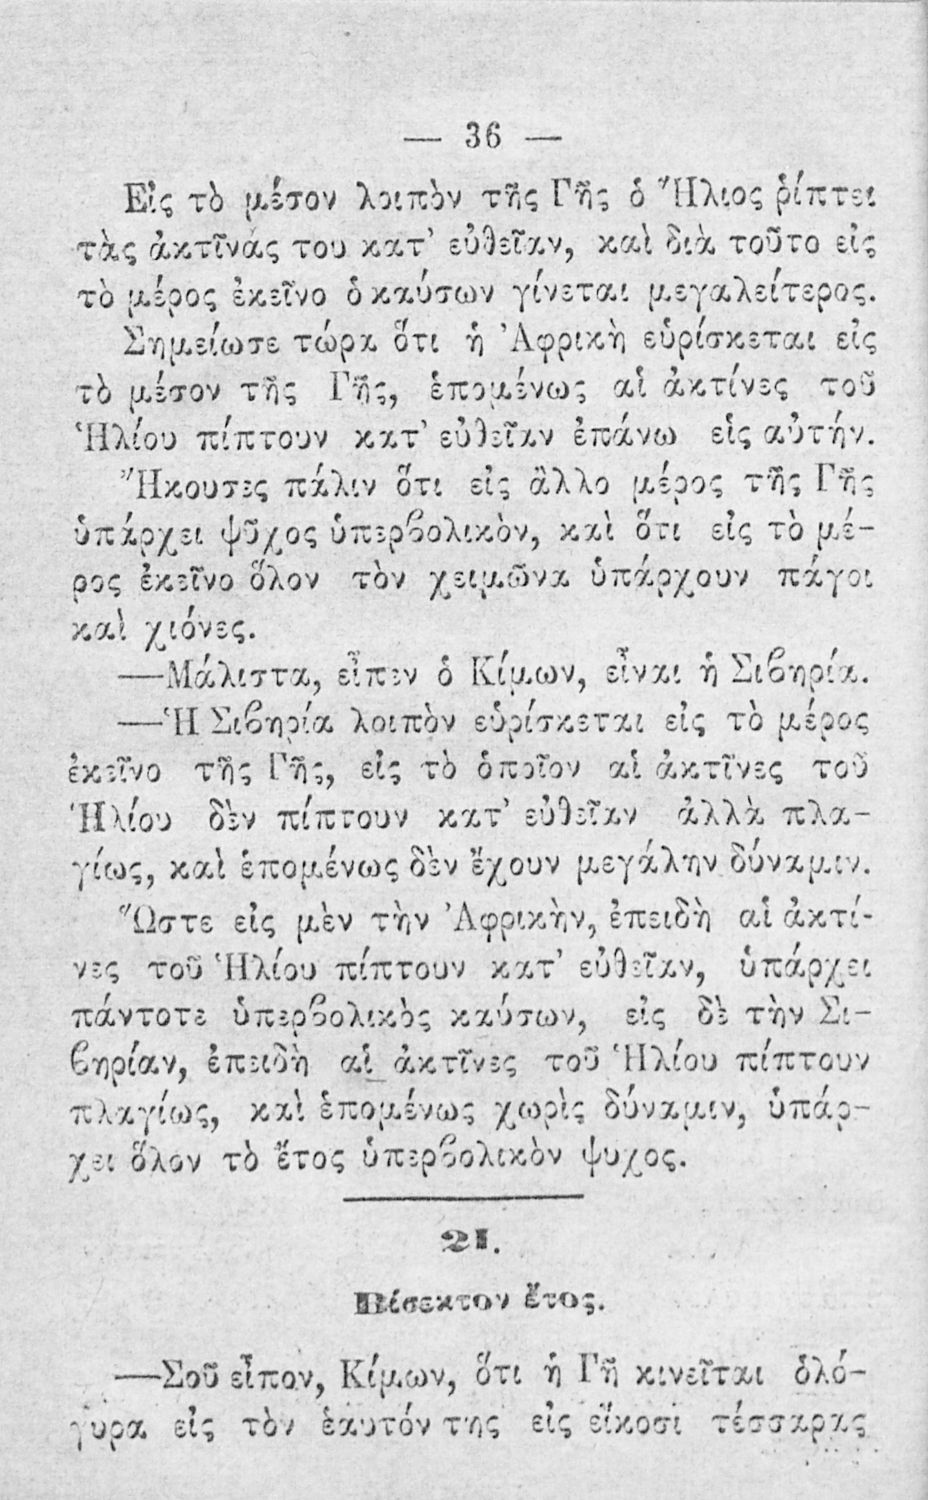 — 36 —
Εἰς τὸ μέσον λοιπὸν τῆς Γῆς ὁ Ἥλιος ῥίπτει
τὰς ἀκτῖνάς του κατ’ εὐθεῖαν, καὶ διὰ τοῦτο εἰς
τὸ μέρος ἐκεῖνο ὁ καύσων γίνεται μεγαλείτερος.
Σημείωσε τώρα ὅτι ἡ Ἀφρικὴ εὑρίσκεται εἰς
τὸ μέσον τῆς Γῆς, ἑπομένως αἱ ἀκτίνες τοῦ
Ἡλίου πίπτουν κατ’ εὐθεῖαν ἐπάνω εἰς αὐτήν.
Ἤκουσες πάλιν ὅτι εἰς ἄλλο μέρος τῆς Γῆς
ὑπάρχει ψῦχος ὑπερβολικὸν, καὶ ὅτι εἰς τὸ μέ-
ρος ἐκεῖνο ὅλον τὸν χειμῶνα ὑπάρχουν πάγοι
καὶ χιόνες.
—Μάλιστα, εἶπεν ὁ Κίμων, εἶναι ἡ Σιβηρία.
—Ἡ Σιβηρία λοιπὸν εὑρίσκεται εἰς τὸ μέρος
ἐκεῖνο τῆς Γῆς, εἰς τὸ ὁποῖον αἱ ἀκτῖνες τοῦ
Ἡλίου δὲν πίπτουν κατ’ εὐθεῖαν ἀλλὰ πλα-
γίως, καὶ ἑπομένως δὲν ἔχουν μεγάλην δύναμιν.
Ὥστε εἰς μὲν τὴν Ἀφρικὴν, ἐπειδὴ αἱ ἀκτί-
νες τοῦ Ἡλίου πίπτουν κατ’ εὐθεῖαν, ὑπάρχει
πάντοτε ὑπερβολικὸς καύσων, εἰς δὲ τὴν Σι-
βηρίαν, ἐπειδὴ αἱ ἀκτῖνες τοῦ Ἡλίου πίπτουν
πλαγίως, καὶ ἑπομένως χωρὶς δύναμιν, ὑπάρ-
χει ὅλον τὸ ἔτος ὑπερβολικὸν ψυχος.
21.
Βίσεκτον ἔτος.
—Σοῦ εἶπον, Κίμων, ὅτι ἡ Γῆ κινεῖται ὁλό-
γυρα εἰς τὸν ἑαυτόν της εἰς εἴκοσι τέσσαρας